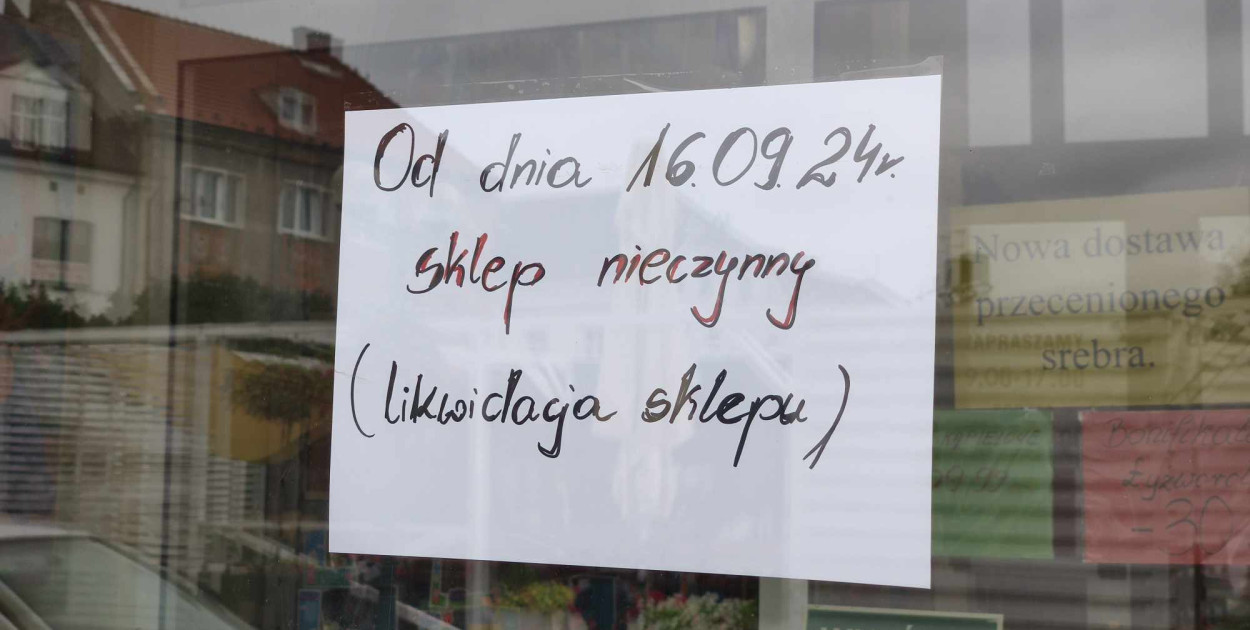 Od dnia 16.09.24r.
sklep nieczynny
(likwidacja sklepu)
Nowa dostawa
przecenionego
srebra.
ZAPRASZAMY
- 30